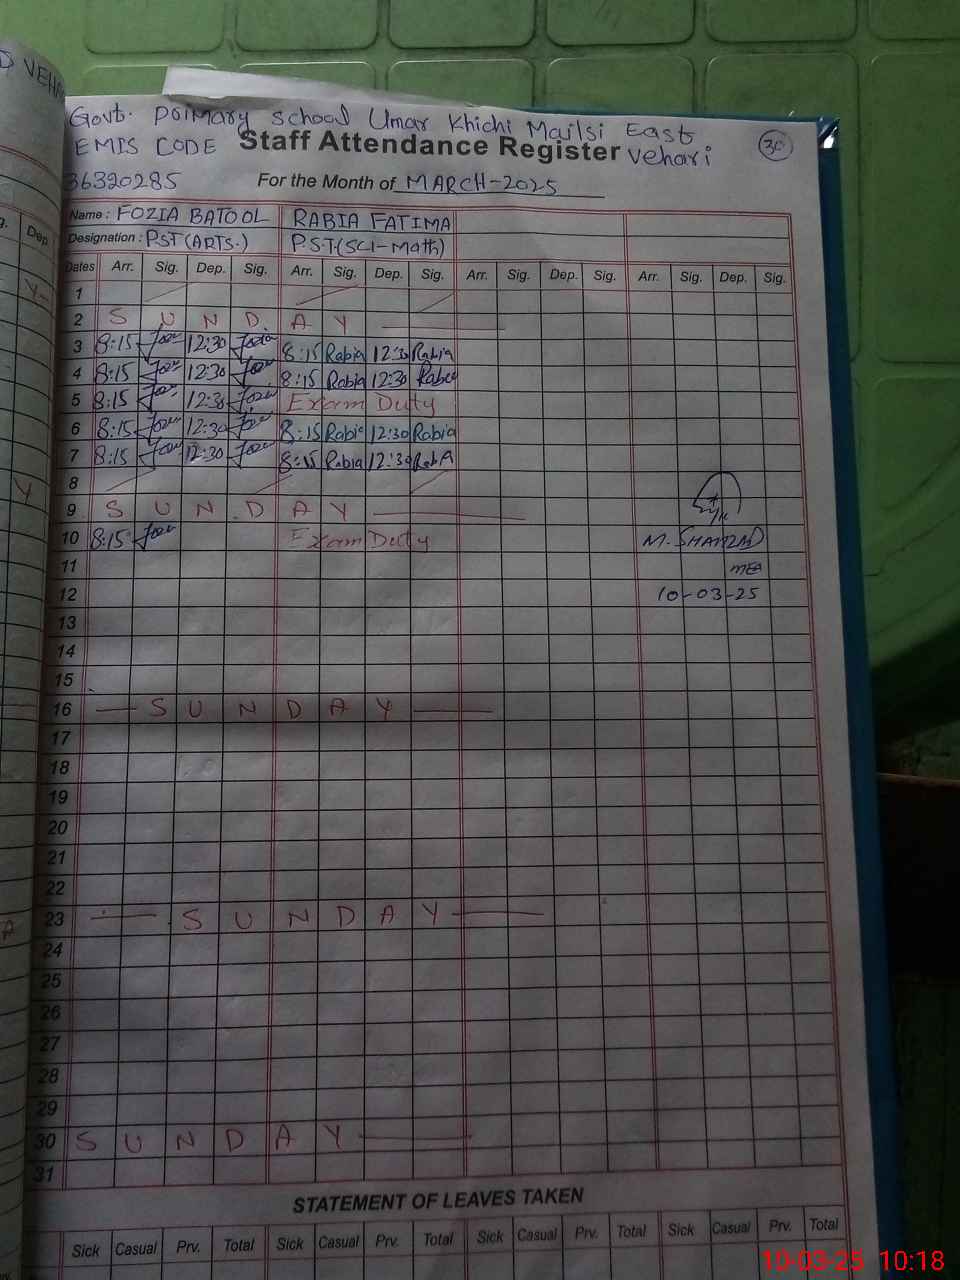 D VEHA
Govt. Primary School Umar Khichi Mailsi East
EMIS CODE Staff Attendance Register Vehari 30
36320285 For the Month of MARCH-2025
Name : FOZIA BATOOL RABIA FATIMA
Designation : PST (ARTS.) P.S.T (SCI-Math)
Dates Arr. Sig. Dep. Sig. Arr. Sig. Dep. Sig. Arr. Sig. Dep. Sig. Arr. Sig. Dep. Sig.
1
2 S U N D. A Y
3 8:15 12:30 8:15 Rabia 12:30 Rabia
4 8:15 12:30 8:15 Rabia 12:30 Rabia
5 8:15 12:30 Exam Duty
6 8:15 12:30 8:15 Rabia 12:30 Rabia
7 8:15 12:30 8:15 Rabia 12:30 Rabia
8
9 S U N D A Y
10 8:15 Exam Duty M. SHAHZAD
11 MEA
12 10-03-25
13
14
15
16 S U N D A Y
17
18
19
20
21
22
23 S U N D A Y
24
25
26
27
28
29
30 S U N D A Y
31
STATEMENT OF LEAVES TAKEN
Sick Casual Prv. Total Sick Casual Prv. Total Sick Casual Prv. Total Sick Casual Prv. Total
10-03-25 10:18